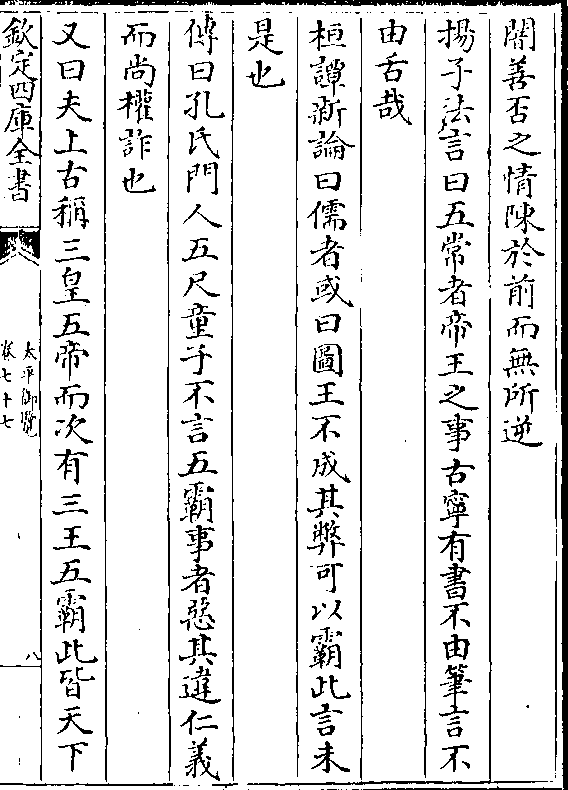 闇善否之情陳於前而無所逆
揚子法言曰五常者帝王之事古寧有書不由筆言不
由舌哉
桓譚新論曰儒者或曰圖王不成其弊可以霸此言未
是也
傳曰孔氏門人五尺童子不言五霸事者惡其違仁義
而尚權詐也
又曰夫上古稱三皇五帝而次有三王五霸此皆天下
欽定四庫全書
太平御覽
卷七十七
八